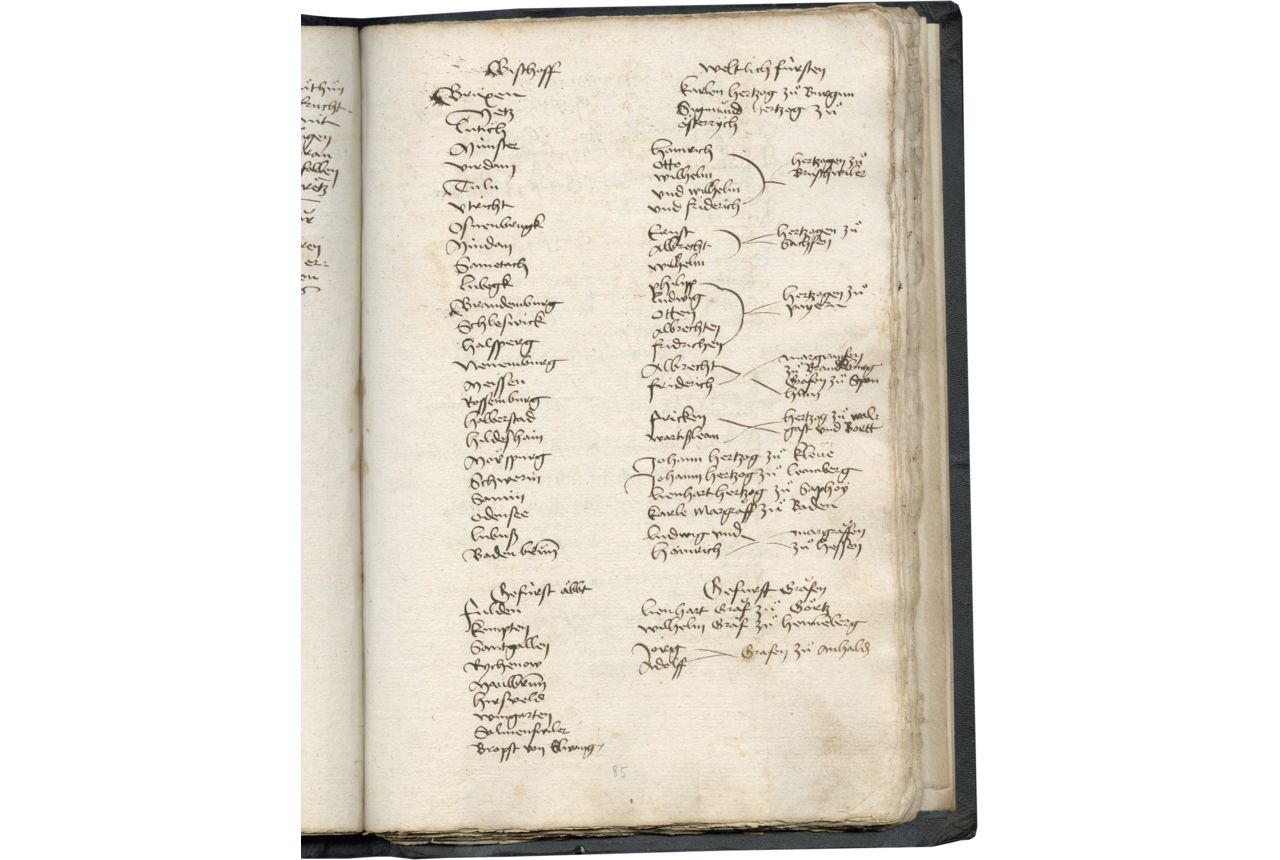 Bischoff
Brixen
Metz
Lutich
Münster
Virdam
Tuln
Vtricht
Osnenbrugk
Mindam
Lubegk
Brandemburg
Schleswick
Halsperg
Nenemburg
Meissen
Rossemburg
Halberstad
Hildeshain
Mörspurg
Schwerin
Samin
Odensee
Lubuß
Gefürst äbbt
Fulden
Kempten
Santgallen
Rychenow
Maulbrun
Hirsveld
Wingarten
Salmenswiler
Bropst von Elwang
weltlich fürsten
karlen hertzog zu Burgun
Sigmund hertzog zu
österrych
hainrich
otto
wilhelm
vnd wilhelm
vnd friderich
hertzogen zu
Brunschwiler
Ernst
Albrecht
wilhelm
hertzogen zu
Sachsen
philipp
Ludwig
Otten
Albrechten
fridrichen
hertzogen zu
payern
Albrecht
friderich
margraufen
zu Brandeburg
Grafen zu Spon
haim
Ericken
wartislaem
hertzog zu wal-
gast vnd Bartt
Johann hertzog zu kleue
Johann hertzog zu
Lienhart hertzog zu Saphoy
karle Margraff zu Baden
Ludwig vnd
hainrich
margraffen
zu hessen
Gefurst Grafen
Lienhart Graf zu Görtz
wilhelm Graf zu Henneberg
Jorig
Adolff
Grafen zu Anhald
85